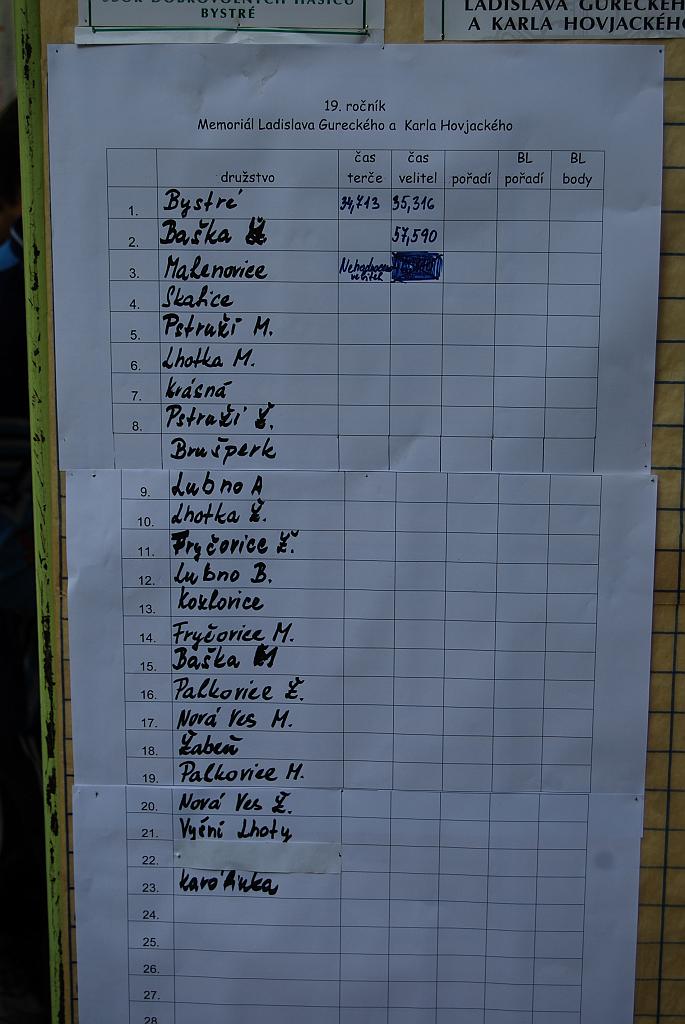 SBOR DOBROVOLNÝCH HASIČŮ
BYSTRÉ
LADISLAVA GURECKÉH
A KARLA HOVJACKÉHO
19. ročník
Memoriál Ladislava Gureckého a Karla Hovjackého
družstvo čas terče čas velitel pořadí BL pořadí BL body
1. Bystré 34,713 35,316
2. Baška Ž 57,590
3. Malenovice
4. Skalice
5. Pstruží M.
6. Lhotka M.
7. Krásná
8. Pstruží Ž.
Brušperk
9. Lubno A
10. Lhotka Ž.
11. Fryčovice Ž.
12. Lubno B.
13. Kozlovice
14. Fryčovice M.
15. Baška M
16. Palkovice Ž.
17. Nová Ves M.
18. Žabeň
19. Palkovice M.
20. Nová Ves Ž.
21. Vyšní Lhoty
22.
23. Karolinka
24.
25.
26.
27.
28